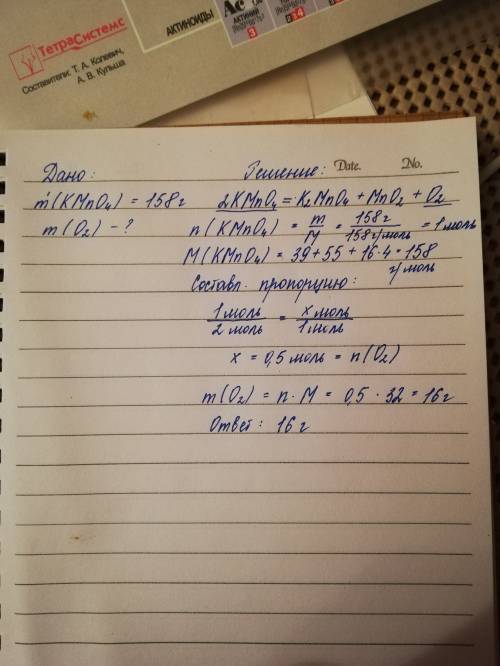 ТетраСистемс
Составители: Т. А. Колевич,
А. В. Кулыша
АКТИНОИДЫ
Ac
АКТИНИЙ
3
Дано:
Решение: Date. No.
m(KMnO₄) = 158 г
2KMnO₄ = K₂MnO₄ + MnO₂ + O₂
m(O₂) - ?
n(KMnO₄) = m/M = 158г/158г/моль = 1 моль
M(KMnO₄) = 39 + 55 + 16·4 = 158
г/моль
Составл. пропорцию:
1 моль/2 моль = x моль/1 моль
x = 0,5 моль = n(O₂)
m(O₂) = n · M = 0,5 · 32 = 16 г
Ответ: 16 г